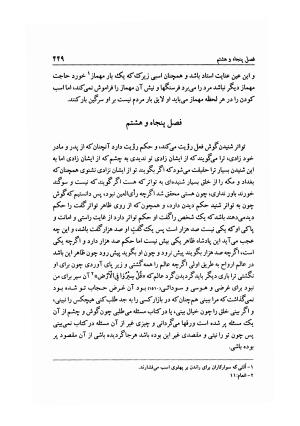 فصل پنجاه و هشتم ۲۴۹
و این عین عنایت استاد باشد و همچنان اسبی زیرک که یک بار مهماز¹ خورد حاجت
مهماز دیگر نباشد مرد را می‌برد فرسنگها و نیش آن مهماز را فراموش نمی‌کند، اما اسب
کودن را در هر لحظه مهماز می‌باید او لایق بار مردم نیست بر او سرگین بار کنند.
فصل پنجاه و هشتم
تواتر شنیدن گوش فعل رؤیت می‌کند، و حکم رؤیت دارد آنچنان که از پدر و مادر
خود زادی، ترا می‌گویند که از ایشان زادی تو ندیدی به چشم که از ایشان زادی اما به
این گفتن بسیار ترا حقیقت می‌شود که اگر بگویند که تو از ایشان نزادی نشنوی همچنان که
بغداد و مکه را از خلق بسیار شنیده‌ای به تواتر که هست اگر گویند که نیست و سوگند
خورند، باور نداری، پس دانستیم که گوش
چون به تواتر شنید حکم دیدن دارد، و همچون که از روی ظاهر تواتر گفت را حکم دیدن
می‌دهند باشد که یک شخص را گفت او حکم تواتر دارد از غایت راستی و امانت و
پاکی او که یکی نیست صد هزار است پس یک گفت او صد هزار گفت باشد، و این چه
عجب می‌آید این پادشاه ظاهر یکی بیش نیست اما حکم صد هزار دارد و اگرچه یکی
است، اگرچه صد هزار بگویند پیش نرود چون او بگوید پیش رود چون ظاهر این باشد
در عالم ارواح به طریق اولی اگرچه عالم را همه گشتی و زیر پای آوردی چون برای او
نگشتی ترا باری دیگر باید گردیدن گرد عالم که «قُلْ سِیرُوا فِی الْأَرْضِ»² آن سیر برای من
نبود برای غرضی و هوسی و سودائی، آن غرض حجاب تو شده بود
نمی‌گذاشت که مرا ببینی همچنان که در بازار کسی را به جد طلب کنی هیچکس را نبینی،
و اگر بینی خلق را چون خیال بینی، یا در کتاب مسئله می‌طلبی چون گوش و چشم از آن
یک مسئله پر شده است ورقها می‌گردانی و چیزی غیر از آن مسئله در کتاب
نمی‌بینی، پس چون ترا مقصدی غیر این بوده باشد هرجا گردیدی از آن مقصود پر
بوده باشی.
۱- آلتی که سوارکاران برای راندن بر پهلوی اسب می‌فشارند.
۲- انعام: ۱۱